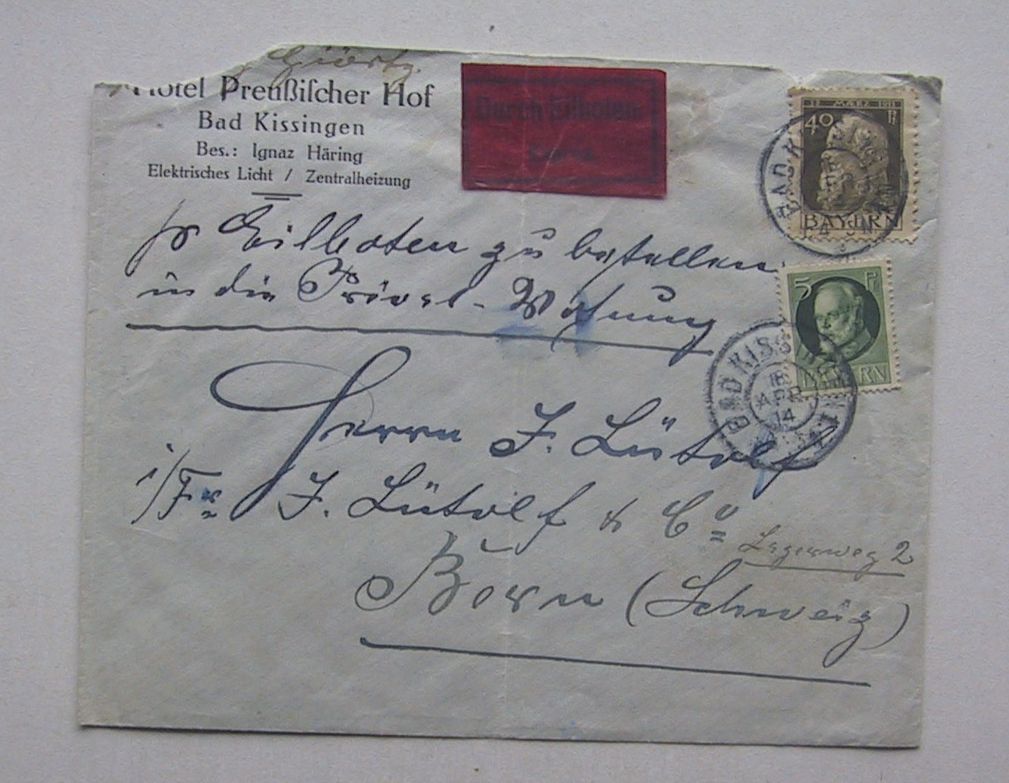 Hotel Preußischer Hof
Bad Kissingen
Bes.: Ignaz Häring
Elektrisches Licht / Zentralheizung
Durch Eilboten
12. MÄRZ 1911
40 Pf
BAYERN
BAD KISSINGEN
5 Pf
BAYERN
BAD KISSINGEN
18 APR 14
pr Eilboten zu bestellen
in die Privat-Wohnung
Herrn J. Lütolf
i/Fa J. Lütolf & Co
Lagerweg 2
Bern (Schweiz)